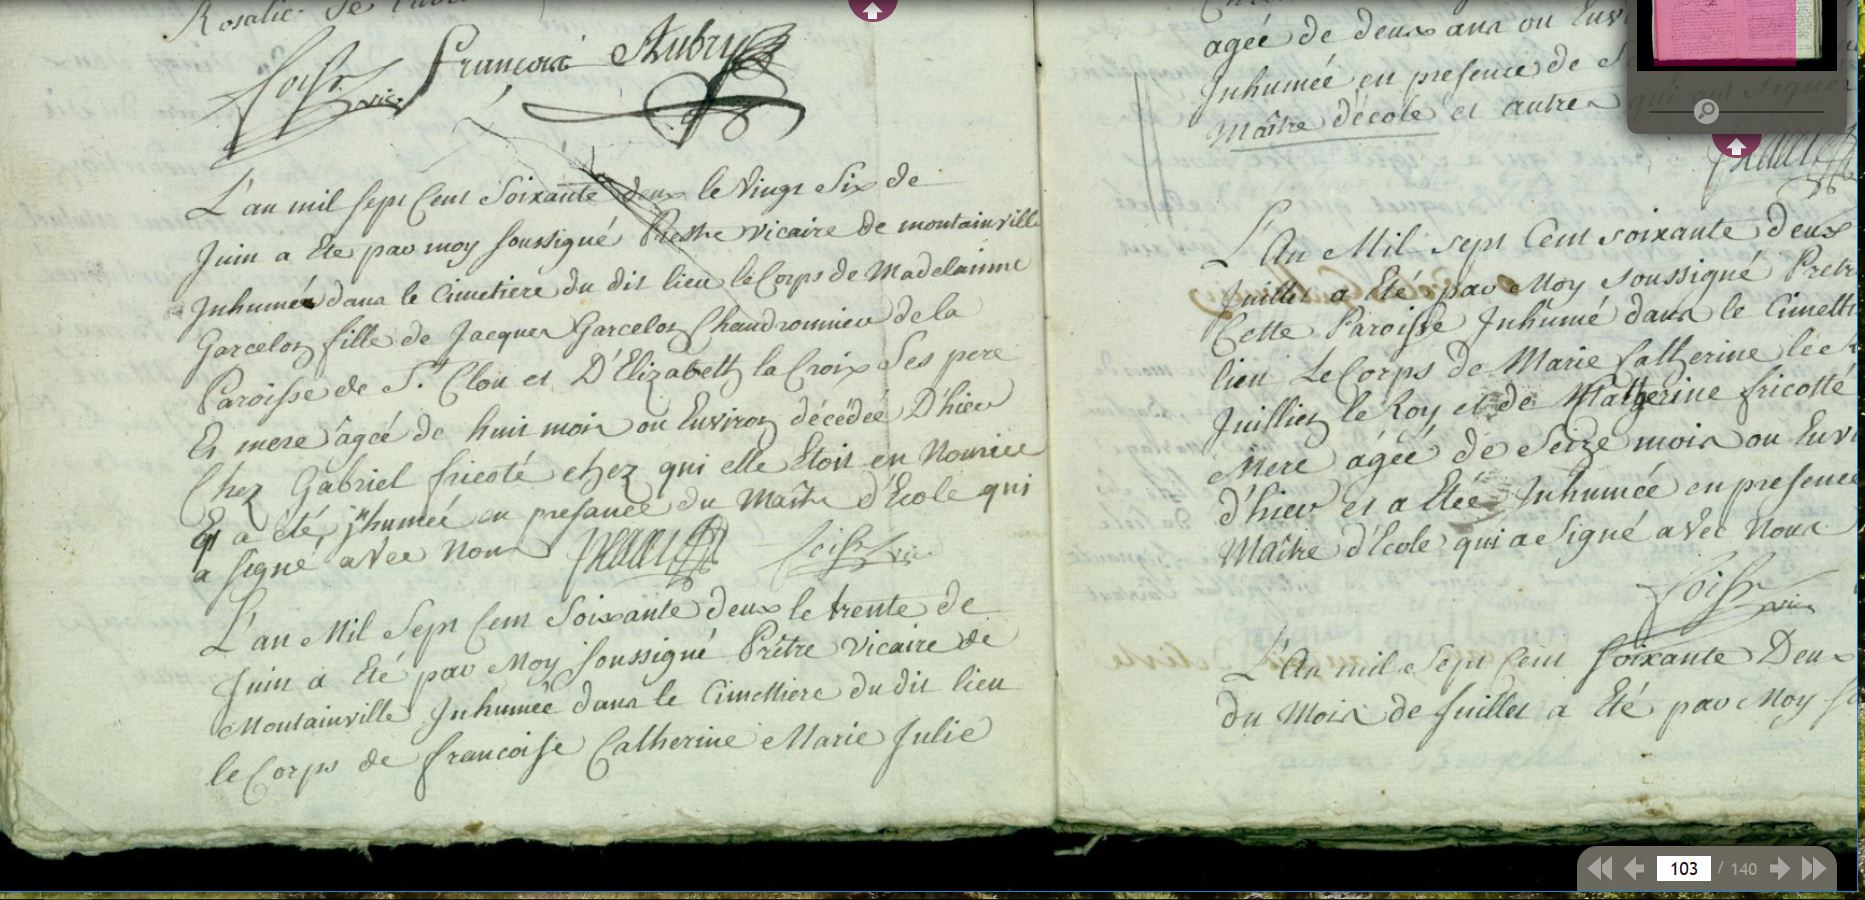 Rosalie de
Loiss vic. François Aubry
L'an mil sept Cent Soixante deux le Vingt Six de
Juin a Eté par moy soussigné Prestre vicaire de montainville
Inhumée dans le Cimetiere du dit lieu le Corps de Madelainne
Garcelon fille de Jacques Garcelon Chaudronnier de la
Paroisse de St. Clou et D'Elizabeth la Croix Ses pere
Et mere âgée de huit mois ou Environ décédée D'hier
Chez Gabriel fricoté chez qui elle Etoit en Nourice
Et a été jnhumée en presance du Maître d'Ecole qui
a signé avec Nous
L'an Mil Sept Cent Soixante deux le trente de
Juin a Eté par Moy soussigné Prêtre Vicaire de
Montainville Inhumée dans le Cimettiere du dit lieu
le Corps de francoise Catherine Marie Julie
agée de deux ans ou Envi
Inhumée en presence de
Maître d'école et autres qui ont signer
L'An Mil sept Cent soixante deux
Juillet a Eté par Moy soussigné Pretre
Cette Paroisse Inhumé dans le Cimetti
lieu Le Corps de Marie Catherine le
Juillien le Roy et de Catherine fricotté
Mere agéé de Seize mois ou Envi
d'hier et a Etée Inhumée en presence
Maître d'Ecole qui a Signé avec Nous
L'An mil Sept Cent soixante Deux
du Mois de Juillet a Eté par Moy
103 / 140